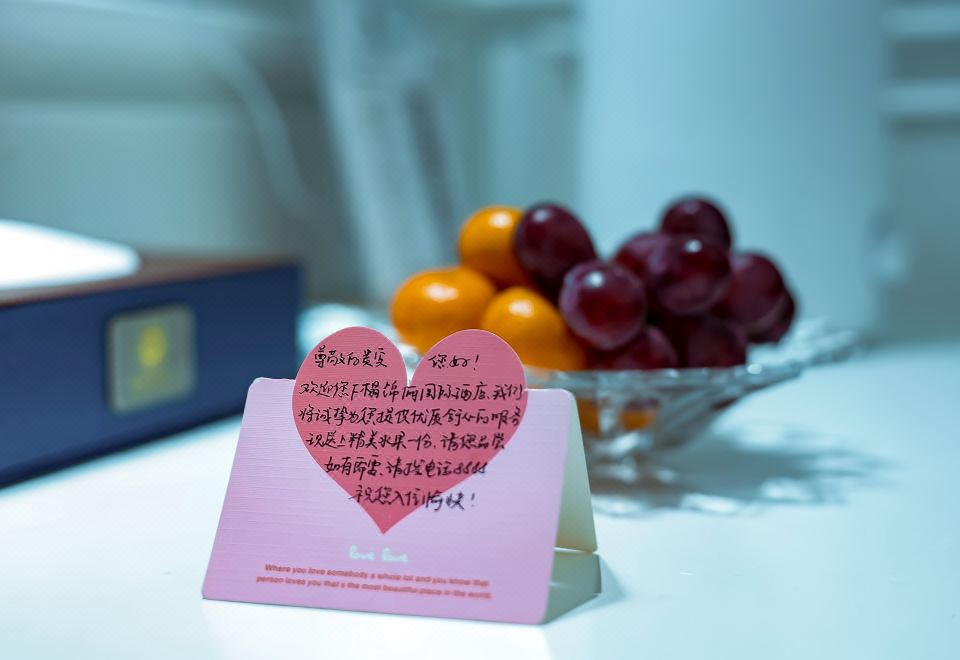 尊敬的贵宾 您好!
欢迎您下榻锦丽国际酒店.我们
将诚挚为您提供优质舒心的服务
现送上精美水果一份,请您品尝
如有所需,请拨电话8888
祝您入住愉快!
love love
Where you love somebody a whole lot and you know that
person loves you that's the most beautiful place in the world.